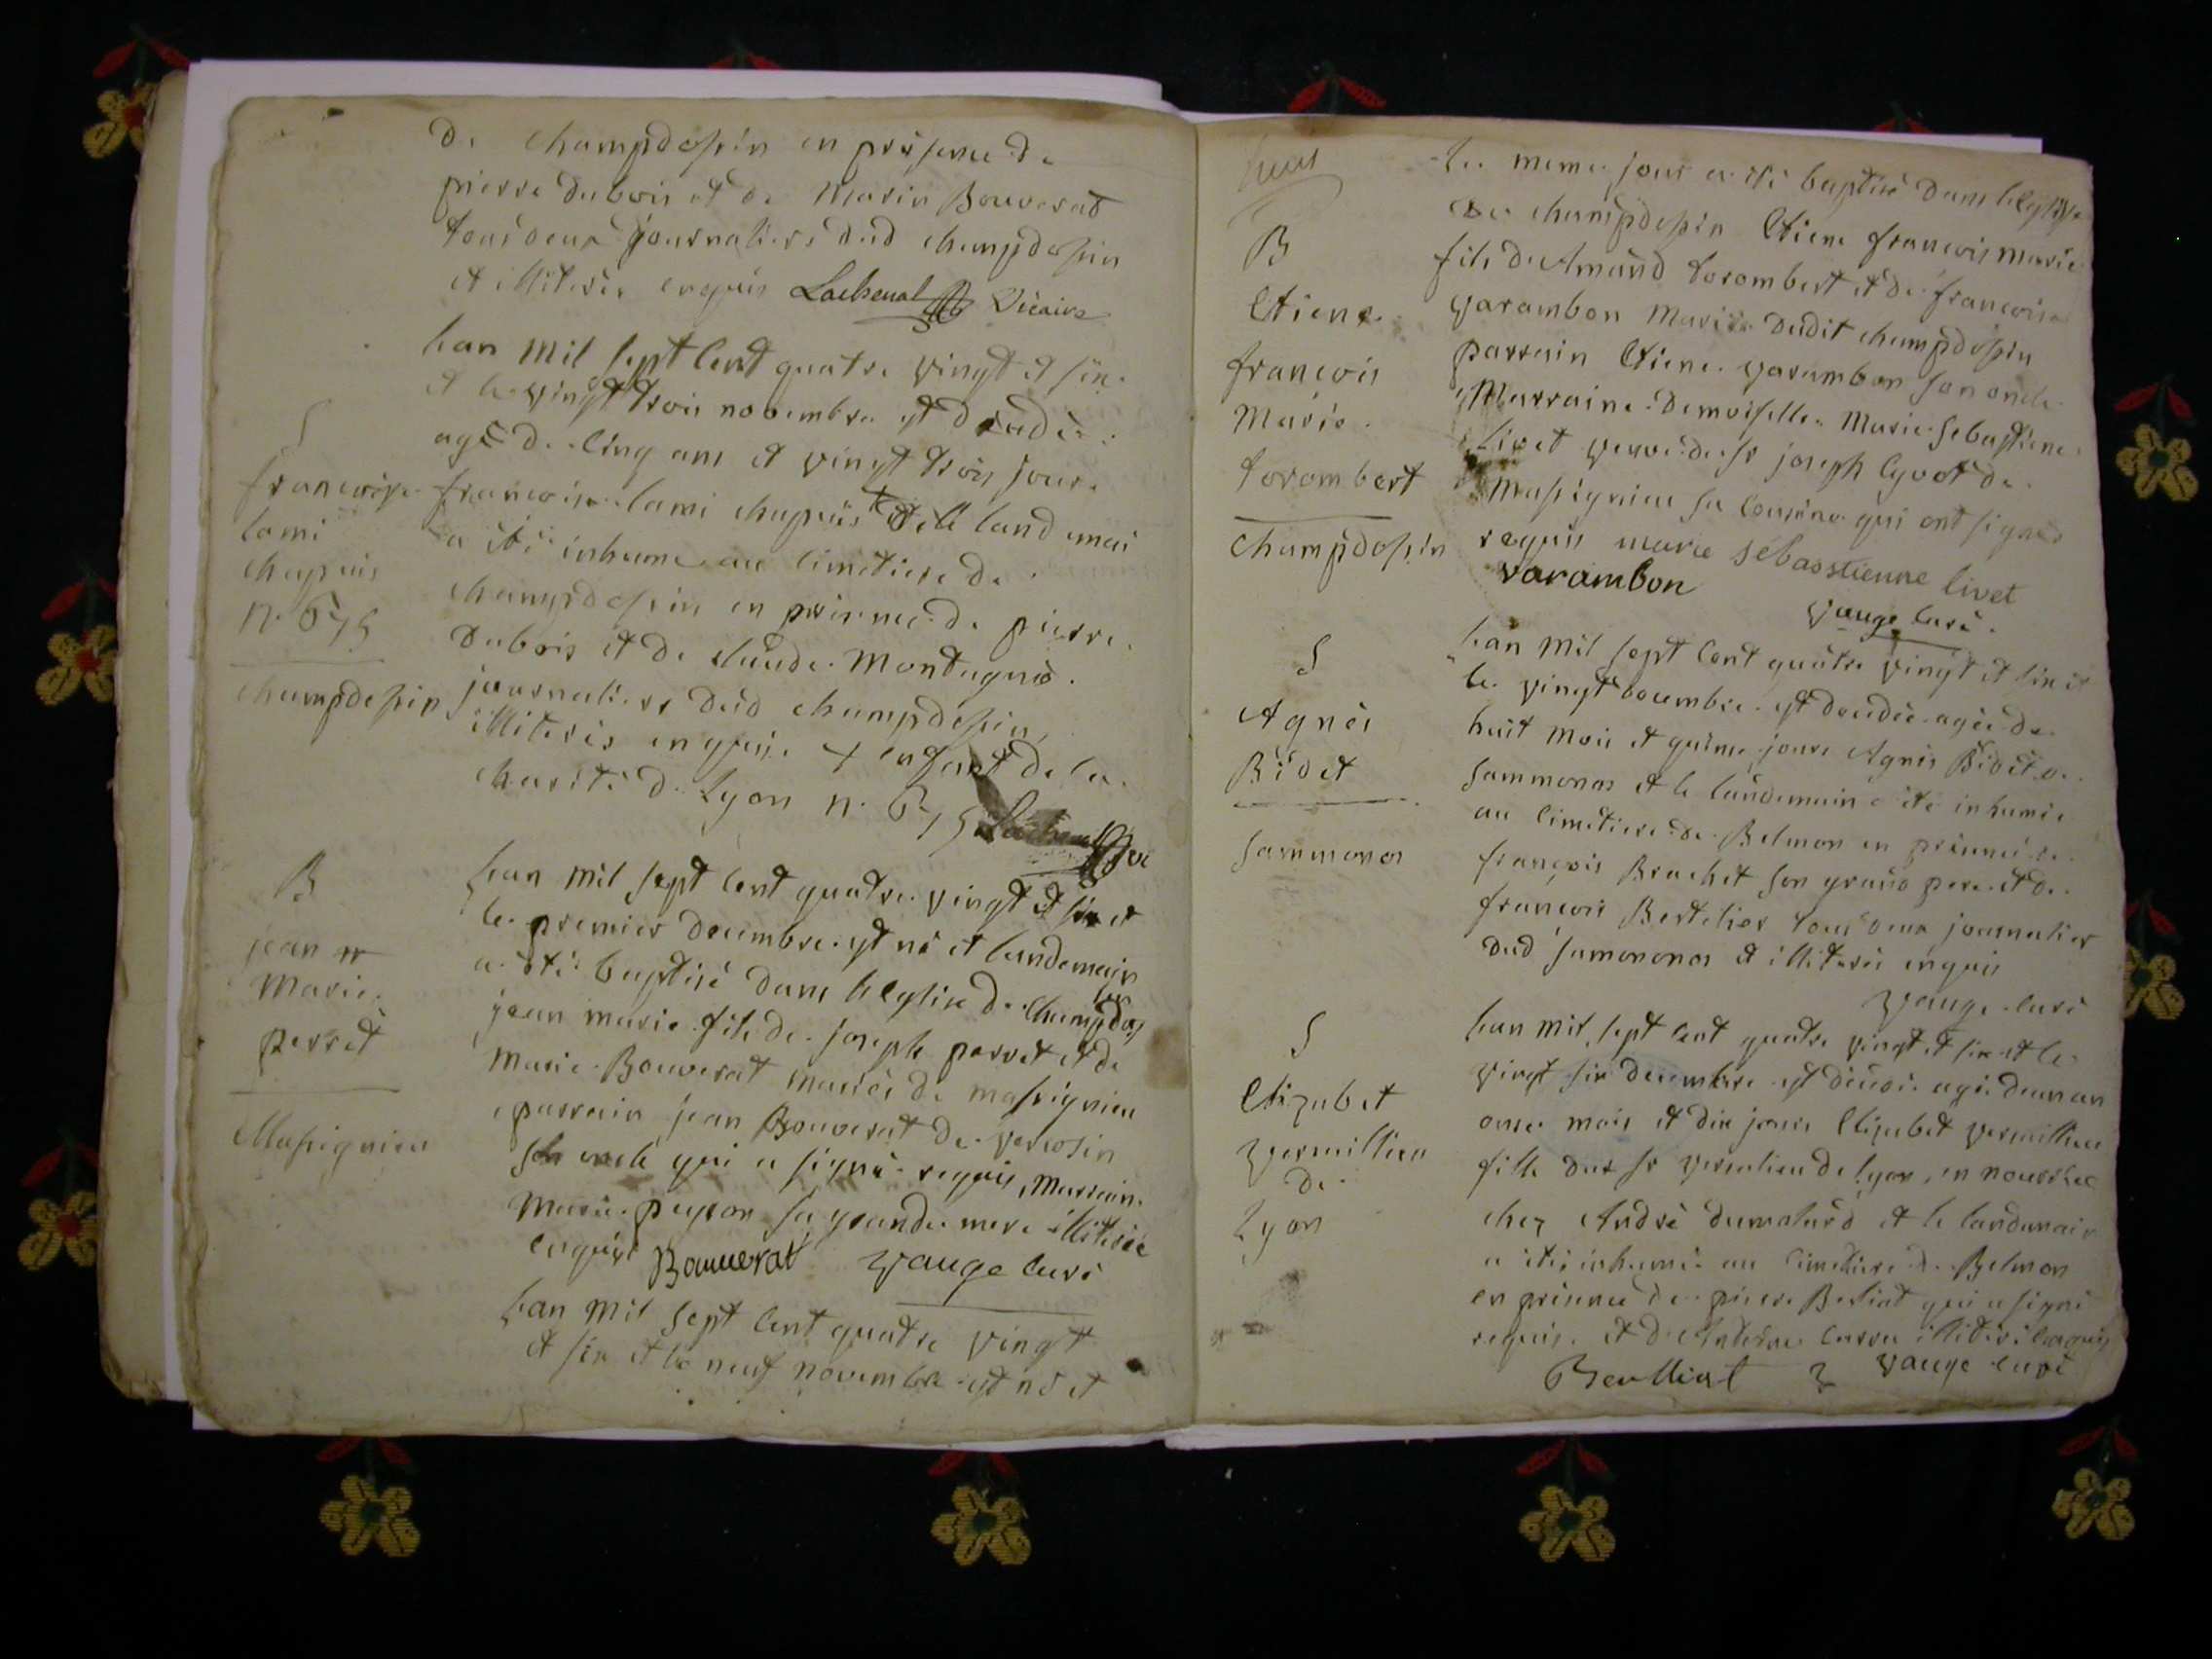 de champdossin en présence de
pierre dubois et de Marin Bouverat
tous deux journaliers dud champdossin
et illiterés enquis Lachenal Vicaire
lan mil sept Cent quatre vingt et six
et le vingt trois novembre est décédé
agé de Cinq ans et vingt trois jours
S
francoise
lami
chapuis
n. 
champdossin
francoise lami chapuis et le land emai
a été inhume au cimetiere de
champdossin en présence de pierre
Dubois et de claude Montagnie
journaliers dud champdossin
illiterés enquis + enfant de la
charité de Lyon n.
B
jean
Marie
perret
Massignieu
lan mil sept Cent quatre vingt et six et
le premier decembre est né et landemain
a été baptisé dans leglise de champdos
sin
jean marie fils de joseph perret et de
Marie Bouverat mariés de massignieu
parrain jean Bouverat de
son oncle qui a signé requis, Marraine
Marie sa grande mere illiterée
enquise Bouuerat Vauge curé
lan mil sept Cent quatre vingt
et six et le neuf novembre est né et
B
Etiene
francois
Marie
torombert
champdossin
le meme jour a été baptisé dans leglise
de champdossin Etiene francois marie
fils de Amand torombert et de francoise
varambon Mariés dudit champdossin
parrain Etiene varambon son oncle
Marraine Demoiselle Marie Sebastiene
livet veuve de sr joseph de
Massignieu sa cousine qui ont signés
requis marie sebasstienne livet
varambon
Vauge curé
S
Agnès
Bidet
sammonos
lan mil sept Cent quatre vingt et six et
le vingt decembre est décédée agée de
huit mois et quinze jours Agnès Bidet de
sammonos et le landemain a été inhumée
au cimetiere de Belmon en présence de
francois Brachet son grand pere et de
francois Bertelier tous deux journalier
dud samononos et illiterés enquis
Vauge curé
S
Elizabet
vermillieu
de
Lyon
lan mil sept cent quatre vingt et six et le
vingt six decembre est décédée agée dun an
onze mois et dix jours Elizabet vermillieu
fille de sr de lyon, en nourrice
chez André dumolard et le landemain
a été inhumée au cimetiere de Belmon
en présence de pierre Belliat qui a signé
requis et d'Anthelme illiteré enquis
Beulliat Vauge curé